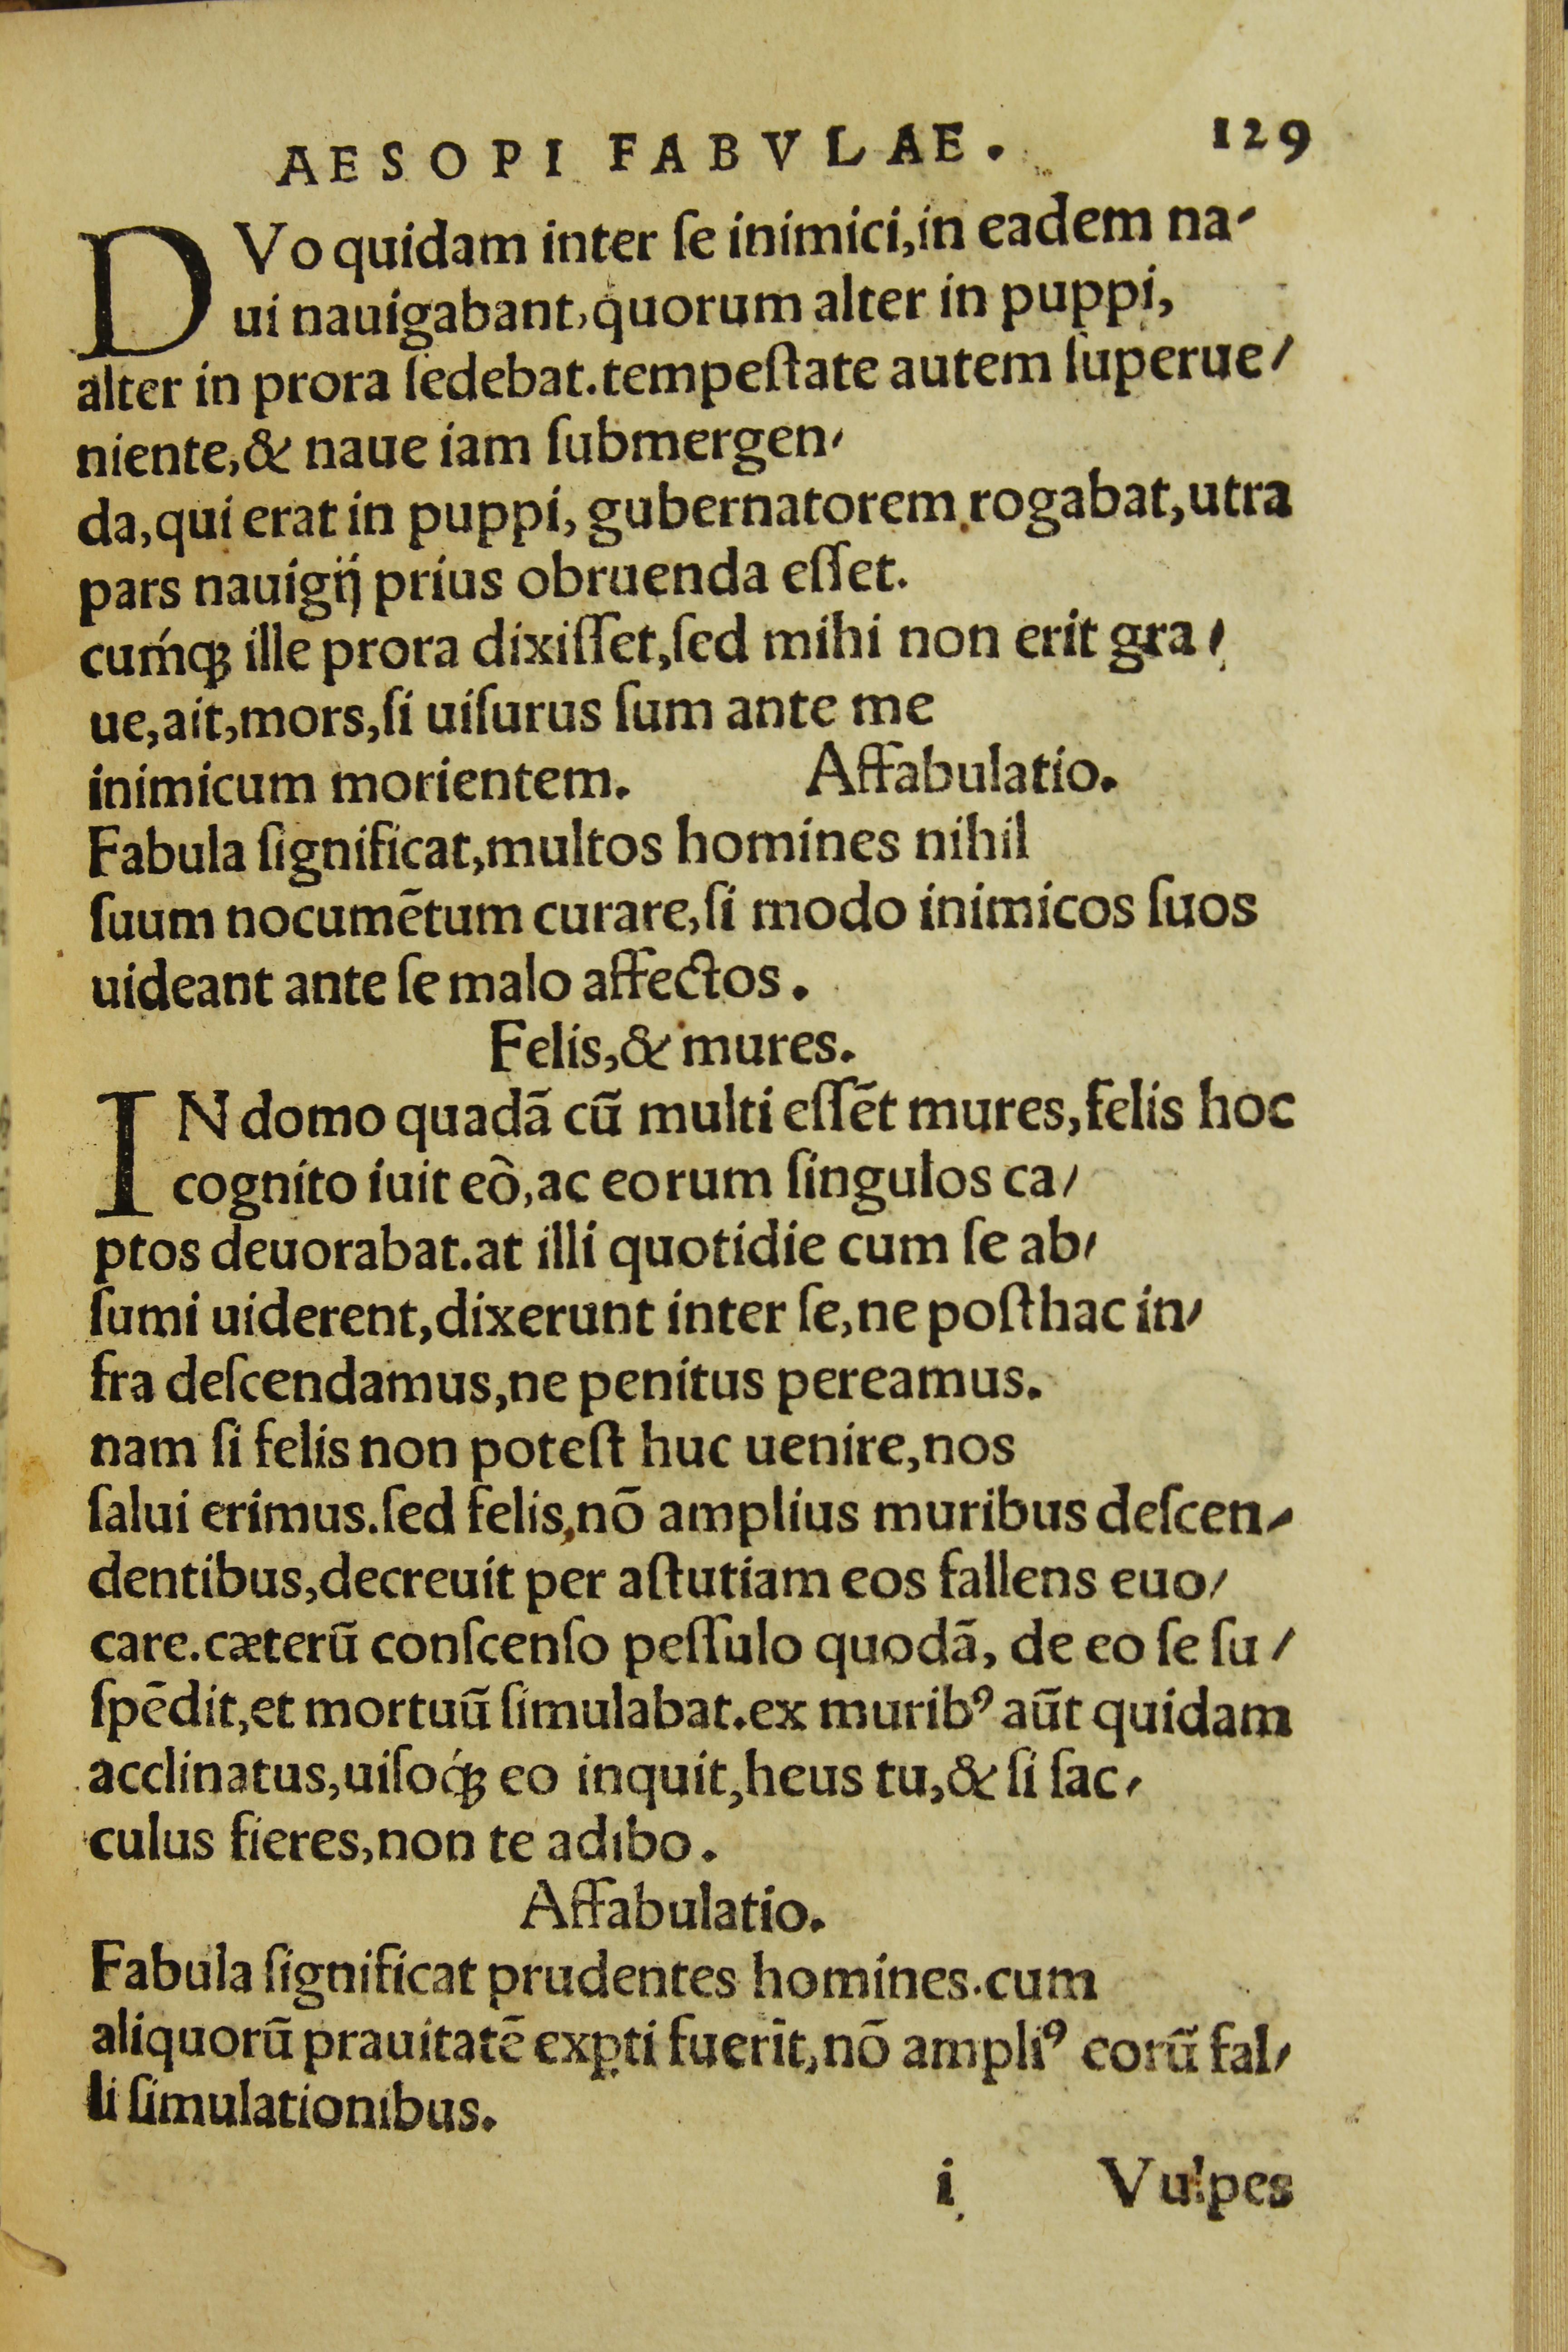 AESOPI FABVLAE. 129
DVo quidam inter ſe inimici,in eadem na-
ui nauigabant,quorum alter in puppi,
alter in prora ſedebat.tempeſtate autem ſuperue/
niente,& naue iam ſubmergen/
da,qui erat in puppi, gubernatorem rogabat,utra
pars nauigij prius obruenda eſſet.
cuḿq; ille prora dixiſſet,ſed mihi non erit gra/
ue,ait,mors,ſi uiſurus ſum ante me
inimicum morientem. Affabulatio.
Fabula ſignificat,multos homines nihil
ſuum nocumētum curare,ſi modo inimicos ſuos
uideant ante ſe malo affectos.
Felis,& mures.
IN domo quadā cū multi eſſēt mures,felis hoc
cognito iuit eò,ac eorum ſingulos ca/
ptos deuorabat.at illi quotidie cum ſe ab/
ſumi uiderent,dixerunt inter ſe,ne poſthac in/
fra deſcendamus,ne penitus pereamus.
nam ſi felis non poteſt huc uenire,nos
ſalui erimus.ſed felis,nō amplius muribus deſcen-
dentibus,decreuit per aſtutiam eos fallens euo/
care.cæterū conſcenſo peſſulo quodā, de eo ſe ſu/
ſpēdit,et mortuū ſimulabat.ex muribꝰ aūt quidam
acclinatus,uiſoq́; eo inquit,heus tu,& ſi ſac/
culus fieres,non te adibo.
Affabulatio.
Fabula ſignificat prudentes homines.cum
aliquorū prauitatē exꝑti fuerīt,nō ampliꝰ eorū fal/
li ſimulationibus.
i Vulpes